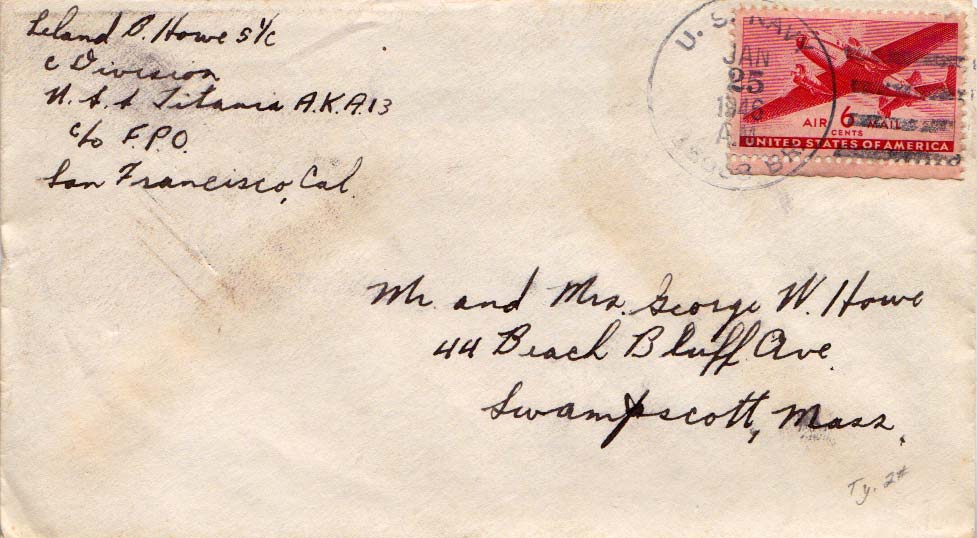 Leland B. Howe S 1/c
C Division
U.S.S Titania A.K.A 13
c/o F.P.O.
San Francisco, Cal.
U. S. NAVY
JAN
25
1946
A.M.
BR.
AIR 6 MAIL
CENTS
UNITED STATES OF AMERICA
Mr. and Mrs. George W. Howe
44 Beach Bluff Ave.
Swampscott, Mass.
Ty. 2#